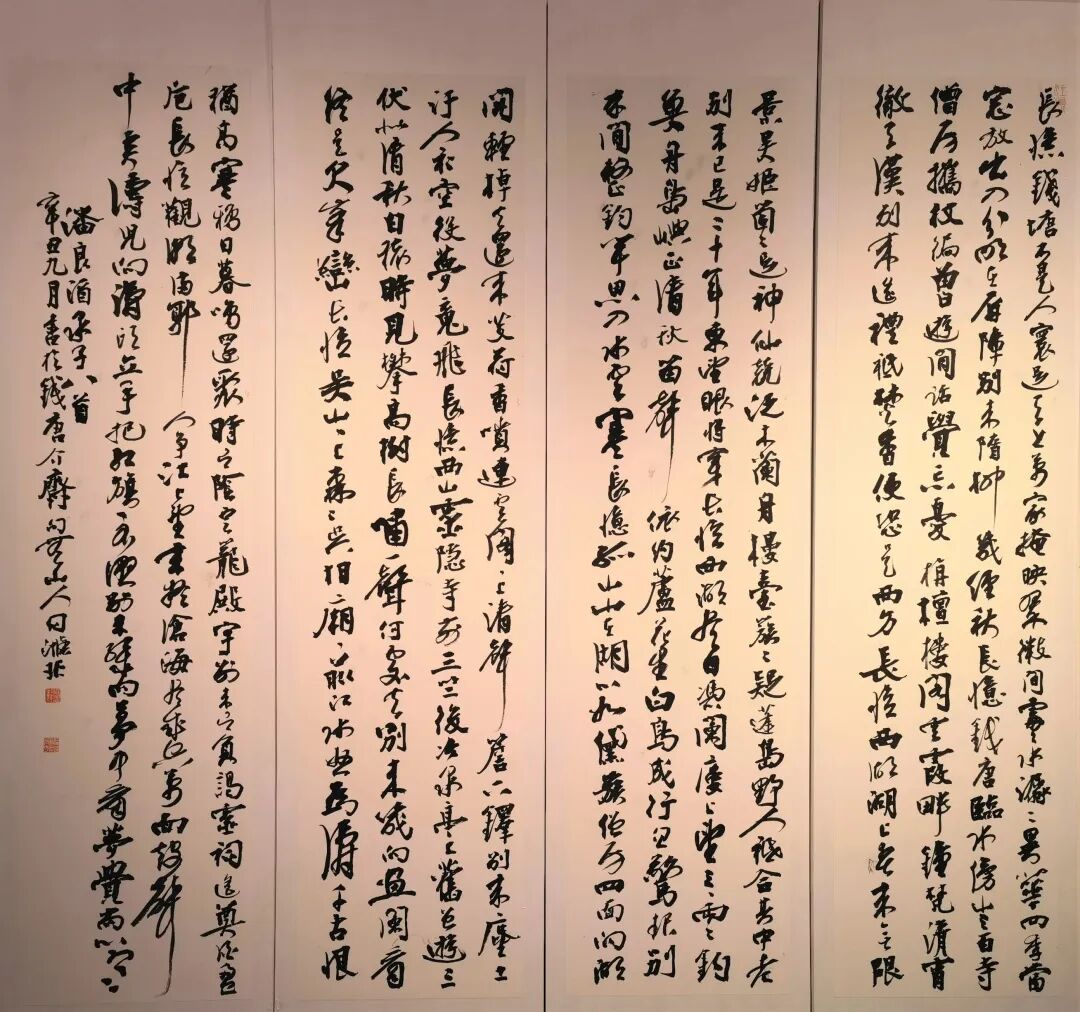 長憶錢塘不是人寰是天上萬家掩映翠微間處水潺ミ異華四季當
窓放出入分明在屏障別來隋柳幾經秋長憶錢唐臨水傍山三百寺
僧房攜杖徧曾遊閒話覺忘憂栴檀樓閣雲霞畔鐘梵清宵
徹天漢別來遙禮祇焚香便恐是西方長憶西湖湖上春來無限
景吳姬箇ミ是神仙競泛木蘭舟樓臺簇ミ疑蓬島野人祇合其中老
別來已是二十年東望眼將穿長憶西湖盡日憑闌樓上望三ミ兩ミ釣
魚舟島嶼正清秋笛聲依約蘆花裏白鳥成行忽驚起別
來閒整釣竿思入水雲寒長憶孤山山在湖心如黛簇僧房四面向湖
開輕棹去還來芰荷香噴連雲閣ミ上清聲簷下鐸別來塵土
汙人衣空役夢魂飛長憶西山靈隱寺前三竺後冷泉亭上舊曾遊三
伏似清秋白猿時見攀高樹長嘯一聲何處去別來幾向畫闌看
終是欠峯巒長憶吳山ミ上森ミ吳相廟ミ前江水怒為濤千古恨
猶高寒鴉日暮鳴還聚時有陰雲籠殿宇別來有負謁靈祠遙奠酒盈
卮長憶觀潮滿郭人爭江上望來疑滄海盡成空萬面鼓聲
中弄濤兒向濤頭立手把紅旗ミ不濕別來幾向夢中看夢覺尚心寒
潘良酒泉子八首
辛丑九月書於錢唐介齋山人